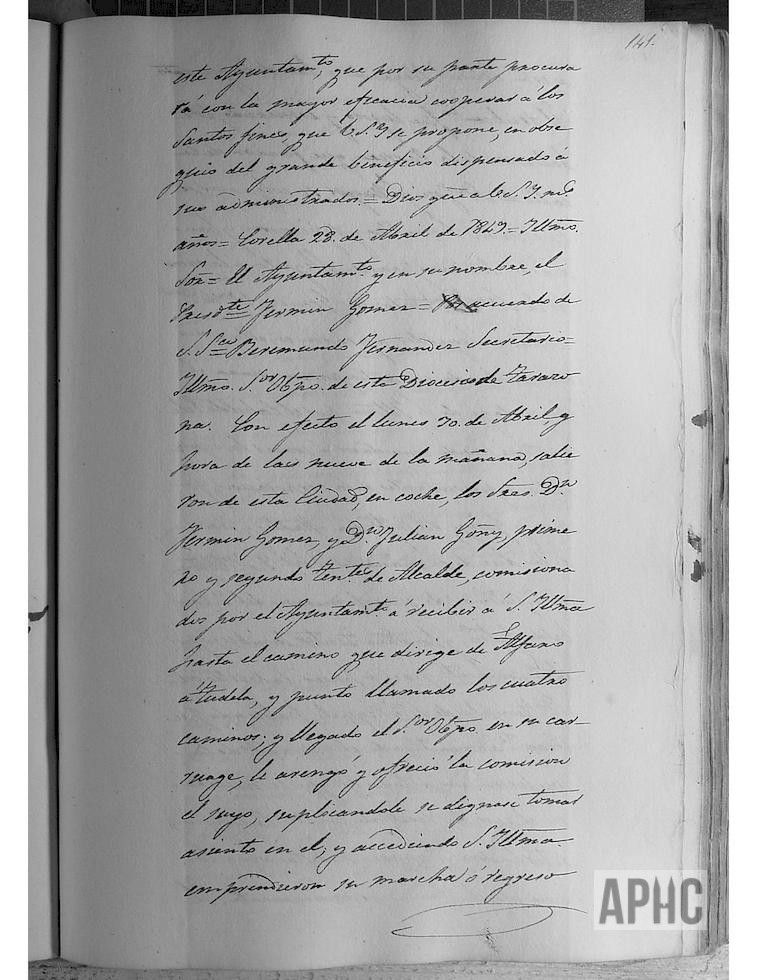 141.
este Ayuntamto, que por su parte procura
rá con la mayor eficacia cooperar á los
Santos fines, que V.S.I. se propone, en obse
quio del grande beneficio dispensado á
sus administrados.= Dios gûe á V.S.I. ms.
años= Corella 28. de Abril de 1849.= Illmo.
Sor.= El Ayuntamto. y en su nombre, el
Presdte= Fermin Gomez= Por acuerdo de
S.S.= Beremundo Fernandez Secretario=
Illmo. Sor. Obpo. de esta Diocesis de Tarazo
na. Con efecto el lunes 30. de Abril, y
hora de las nueve de la mañana, salie
ron de esta Ciudad, en coche, los Sres. Dn.
Fermin Gomez, y Dn. Julian Goñy, prime
ro y segundo Tentes. de Alcalde, comisiona
dos por el Ayuntamto. á recibir á S. Illma
hasta el camino que dirige de Alfaro
á Tudela, y punto llamado los cuatro
caminos; y llegado el Sor. Obpo. en su car-
ruage, le arengó y ofreció la comision
el suyo, suplicandole se dignase tomar
asiento en el; y accediendo S. Illma.
emprendieron su marcha ó regreso
APHC